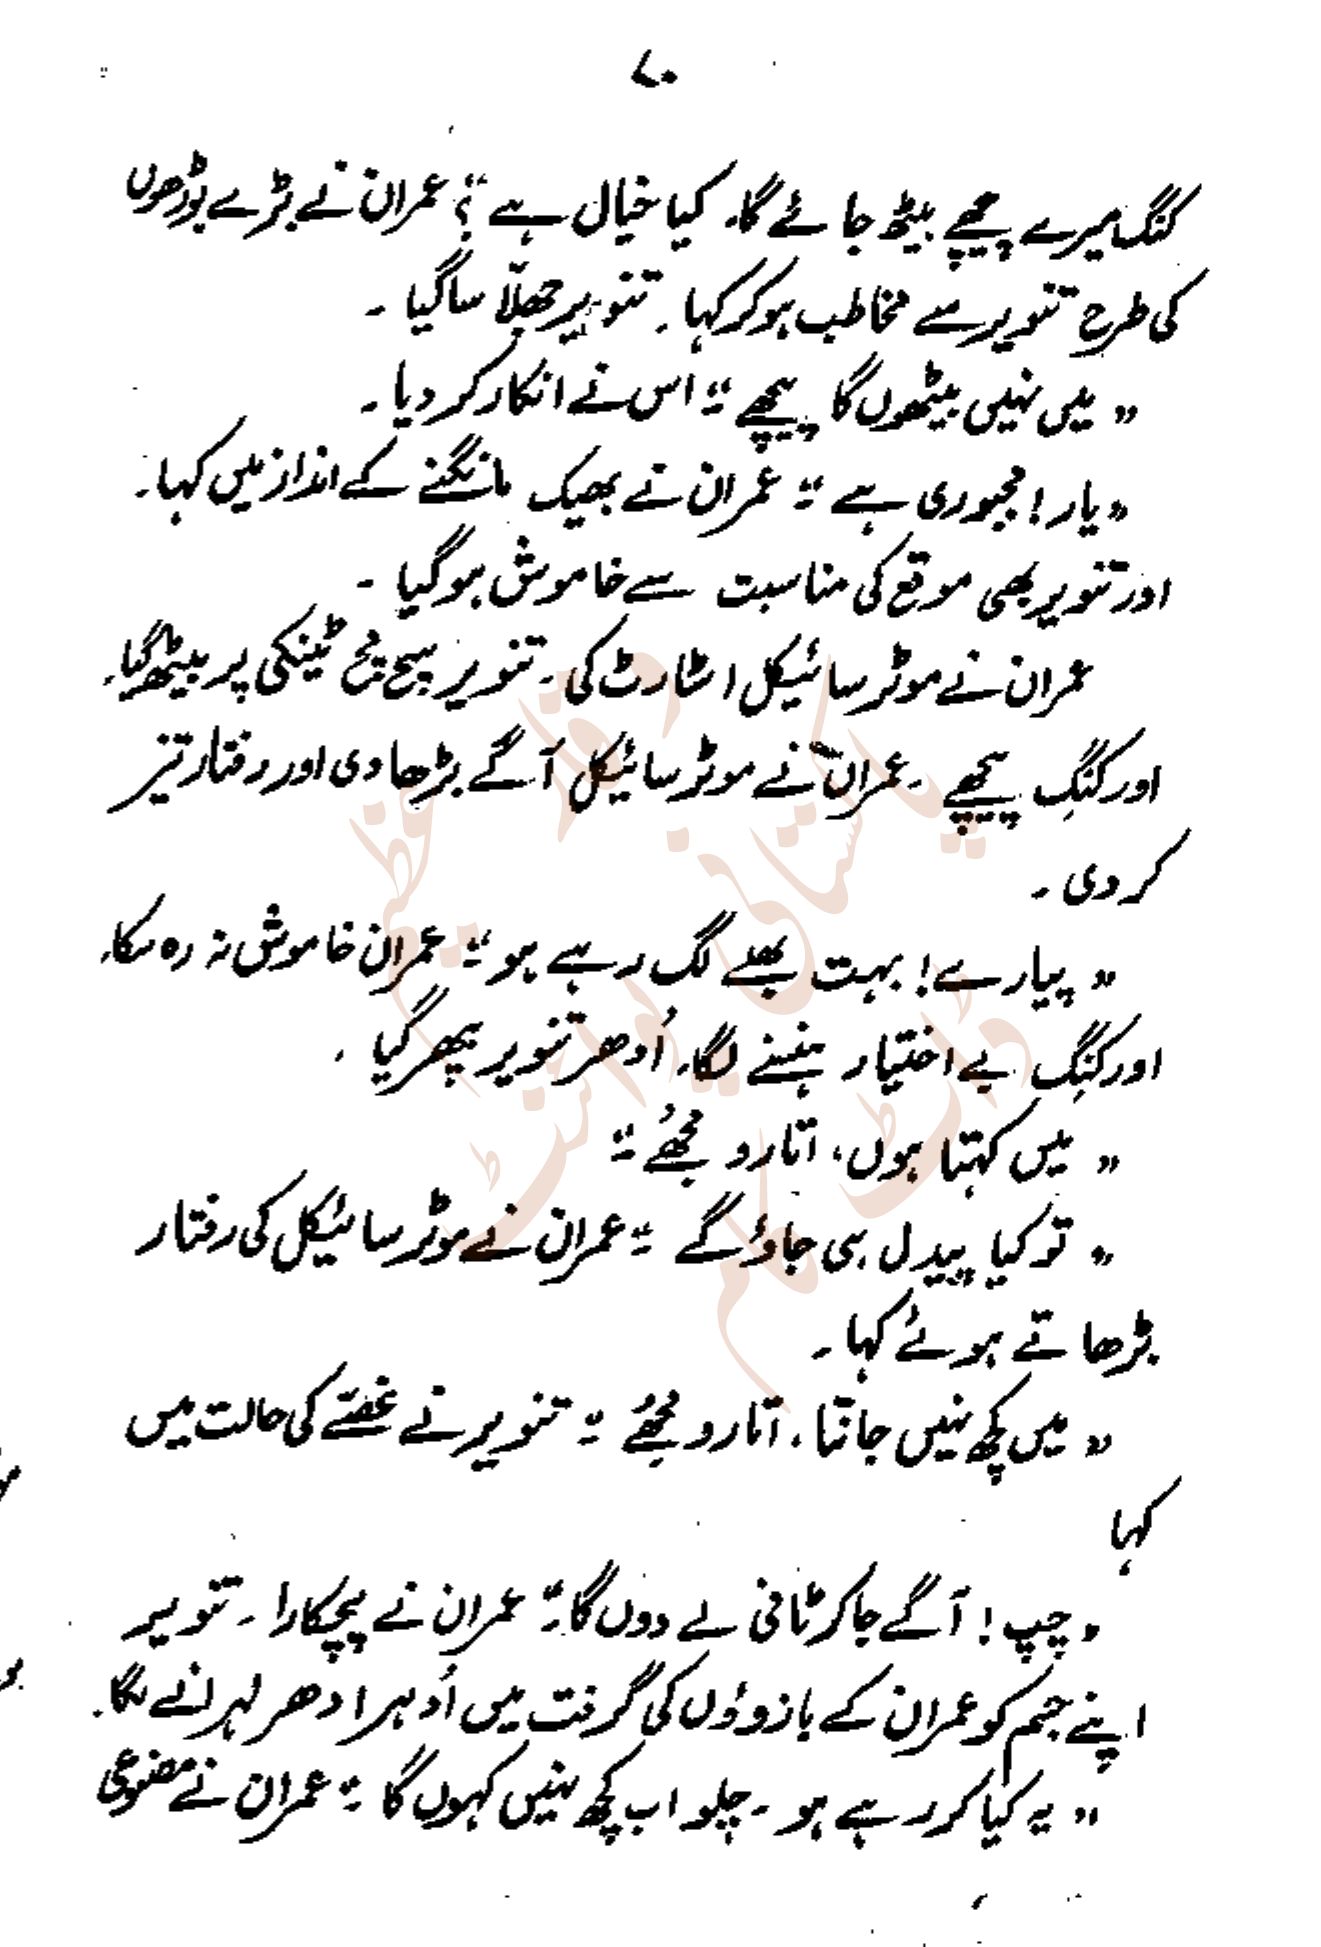 ۷۰
کنگ میرے پیچھے بیٹھ جائے گا۔ کیا خیال ہے؟" عمران نے بڑے بوڑھوں
کی طرح تنویر سے مخاطب ہو کر کہا۔ تنویر جھلّا سا گیا۔
"میں نہیں بیٹھوں گا پیچھے۔" اس نے انکار کر دیا۔
"یار! مجبوری ہے۔" عمران نے بھیک مانگنے کے انداز میں کہا۔
اور تنویر بھی موقع کی مناسبت سے خاموش ہو گیا۔
عمران نے موٹر سائیکل اسٹارٹ کی۔ تنویر سچ مچ ٹینکی پر بیٹھ گیا۔
اور کنگ پیچھے۔ عمران نے موٹر سائیکل آگے بڑھا دی اور رفتار تیز
کر دی۔
"پیارے! بہت بھلے لگ رہے ہو۔" عمران خاموش نہ رہ سکا۔
اور کنگ بے اختیار ہنسنے لگا۔ اُدھر تنویر بپھر گیا۔
"میں کہتا ہوں، اتارو مجھے۔"
"تو کیا پیدل ہی جاؤ گے۔" عمران نے موٹر سائیکل کی رفتار
بڑھاتے ہوئے کہا۔
"میں کچھ نہیں جانتا، اتارو مجھے۔" تنویر نے غصّے کی حالت میں
کہا
"چپ! آگے جا کر ٹافی لے دوں گا۔" عمران نے پچکارا۔ تنویر
اپنے جسم کو عمران کے بازوؤں کی گرفت میں اُدہر ادھر لہرانے لگا۔
"یہ کیا کر رہے ہو۔ چلو اب کچھ نہیں کہوں گا۔" عمران نے مصنوعی
پاکستانی پوائنٹ
ڈاٹ کام